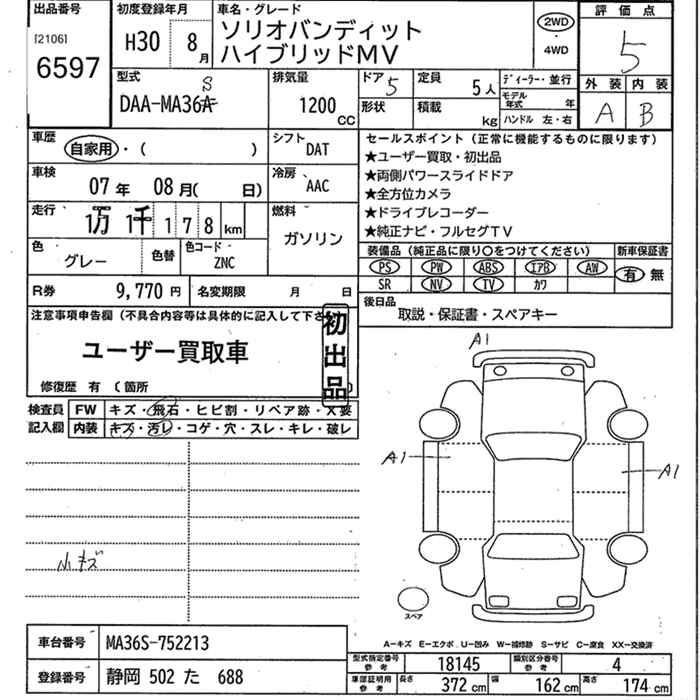 出品番号 初度登録年月 車名・グレード 評価点
[2106] 6597 H30 8月 ソリオバンディット 2WD 5
ハイブリッドMV ・4WD
型式 排気量 ドア 定員 ディーラー・並行 外装 内装
DAA-MA36S 1200CC 5 5人 モデル年式 年 A B
形状 積載 kg ハンドル 左・右
車歴 自家用・( ) シフト DAT
車検 07年 08月( 日) 冷房 AAC
走行 1万 1千 1 7 8 km 燃料 ガソリン
色 グレー 色替 色コード ZNC
R券 9,770円 名変期限 月 日
セールスポイント(正常に機能するものに限ります)
★ユーザー買取・初出品
★両側パワースライドドア
★全方位カメラ
★ドライブレコーダー
★純正ナビ・フルセグTV
装備品(純正品に限り○をつけてください) 新車保証書
PS PW ABS エアB AW 有 無
SR NV TV カワ
後日品 取説・保証書・スペアキー
注意事項申告欄(不具合内容等は具体的に記入して下さ
ユーザー買取車
初出品
修復歴 有 (箇所 )
検査員 FW キズ・飛石・ヒビ割・リペア跡・X要
記入欄 内装 キズ・汚レ・コゲ・穴・スレ・キレ・破レ
小キズ
A1
A1
A1
スペア
A−キズ E−エクボ U−凹み W−補修跡 S−サビ C−腐食 XX−交換済
車台番号 MA36S-752213
登録番号 静岡 502 た 688
型式指定番号 参考 18145 類別区分番号 参考 4
車部証明用 参考 長さ 372cm 幅 162cm 高さ 174cm